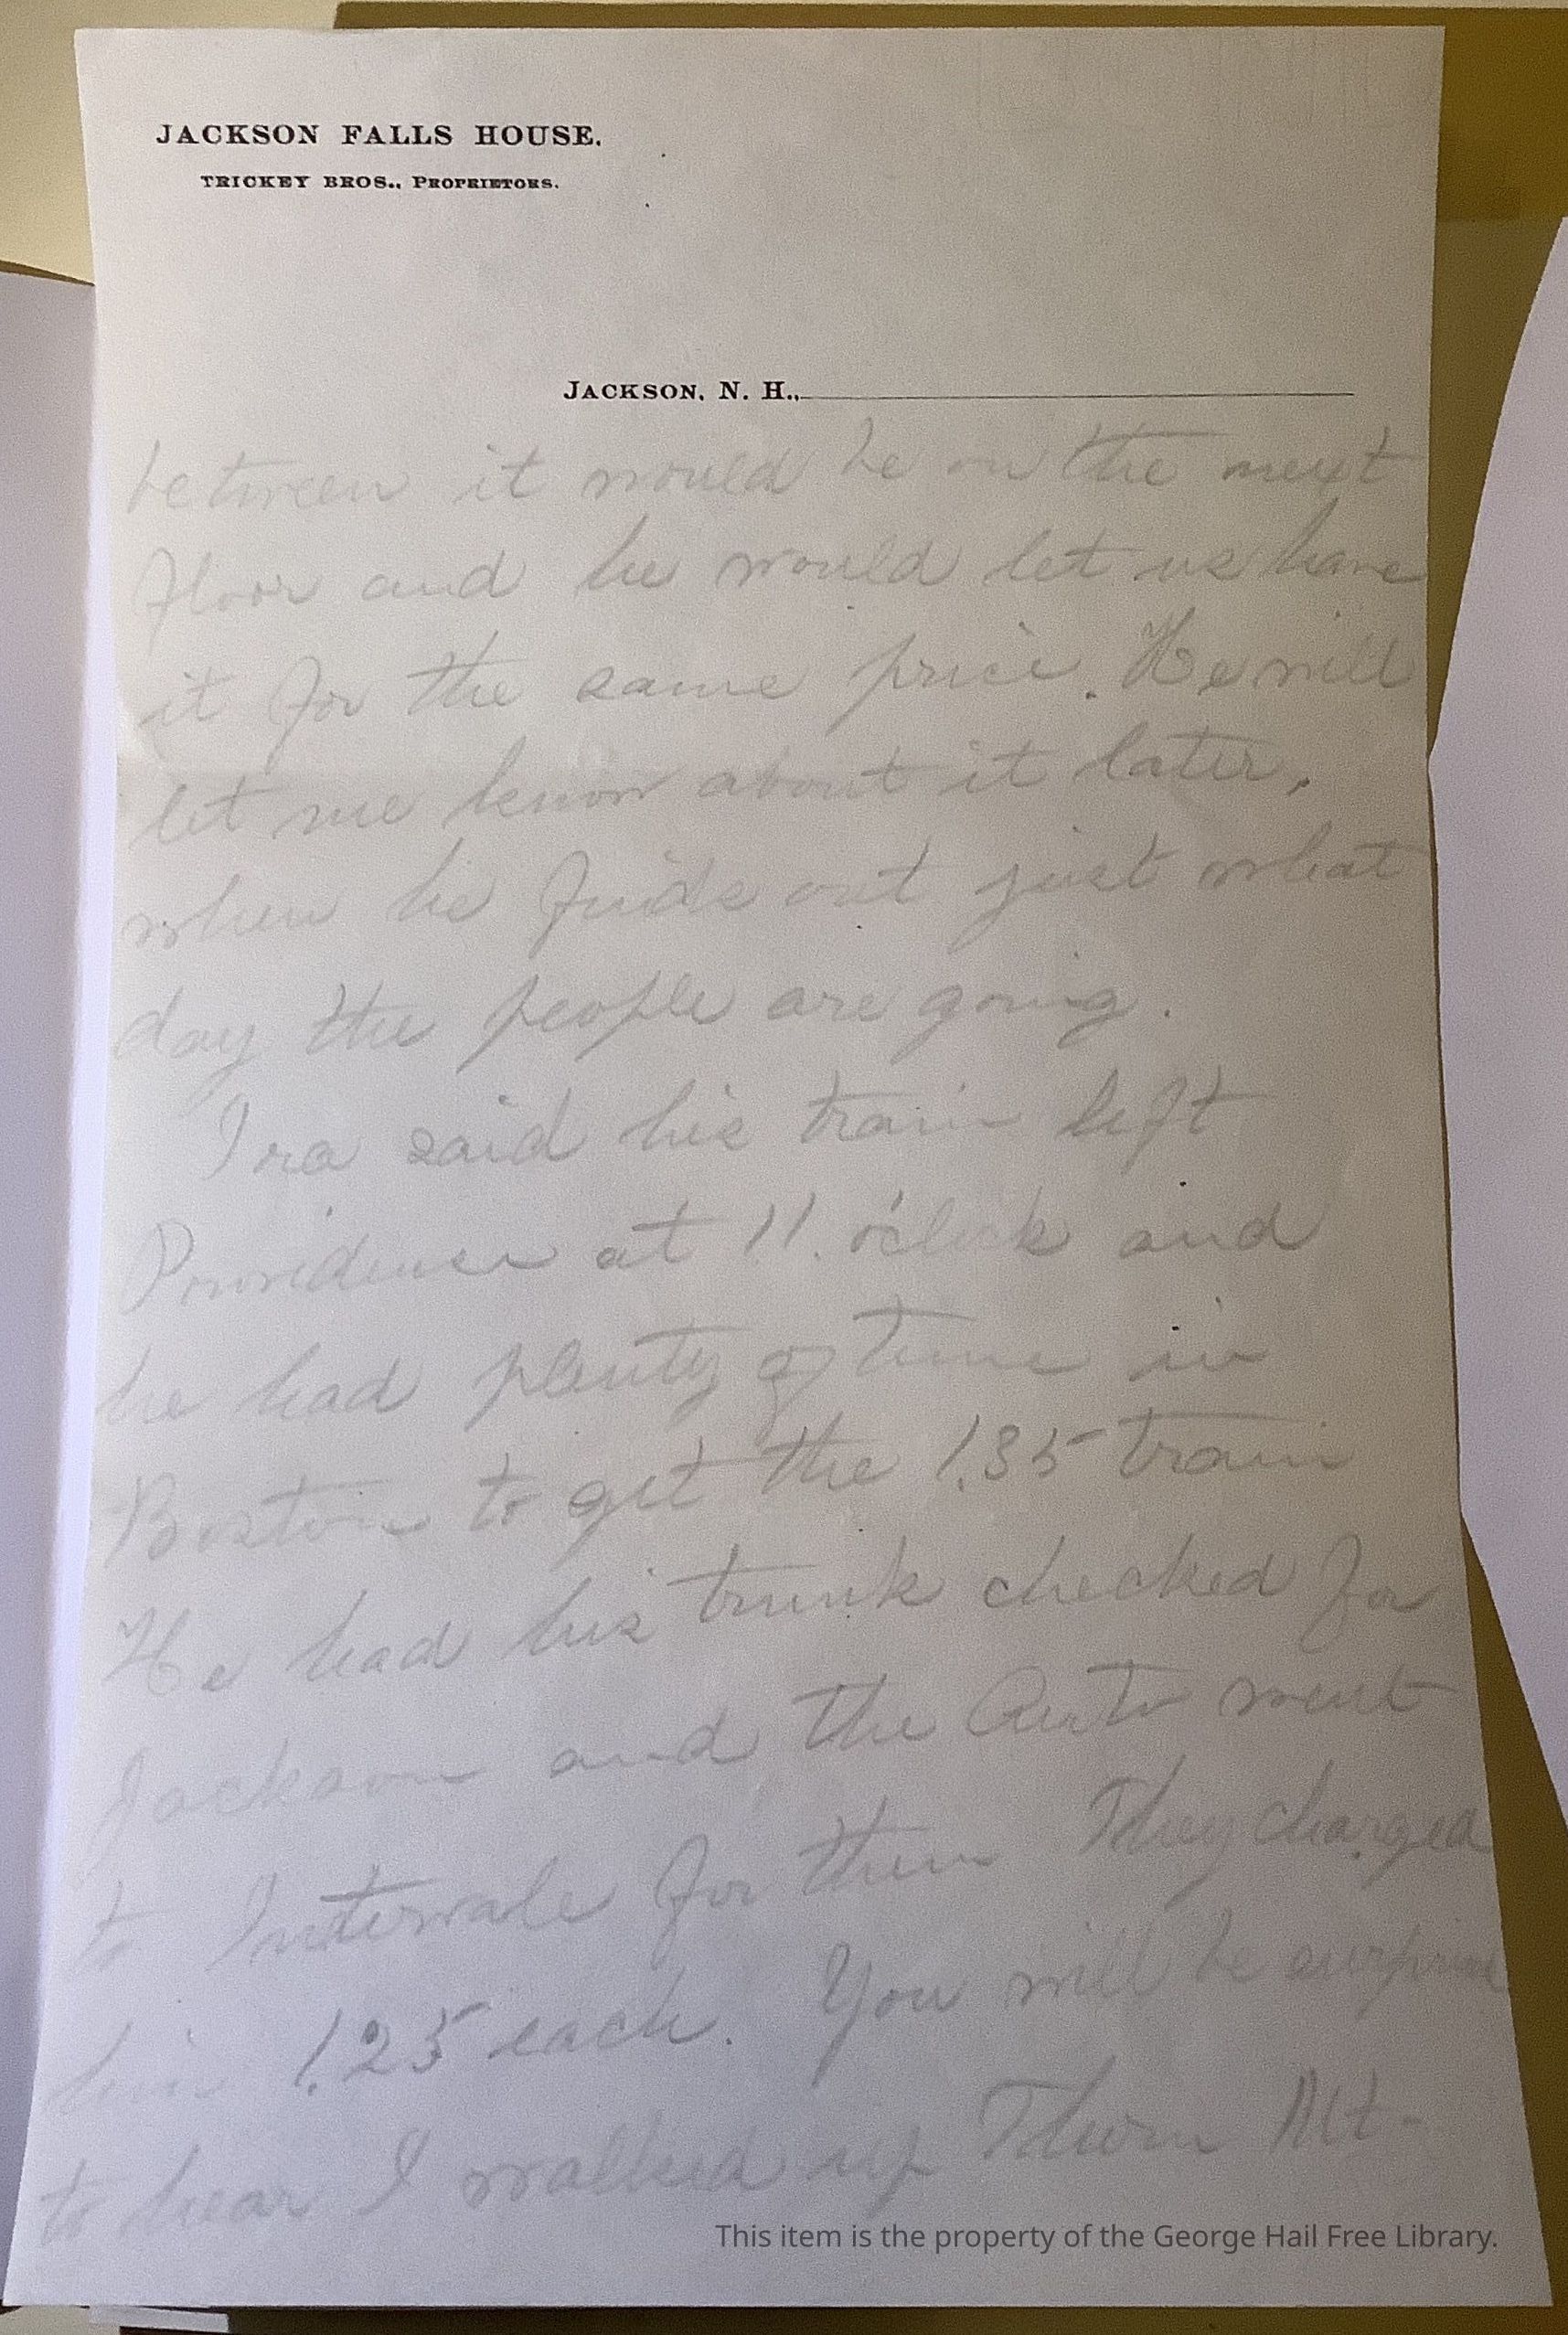 JACKSON FALLS HOUSE.
TRICKEY BROS., PROPRIETORS.
JACKSON, N. H.,
between it would be on the next
floor and he would let us have
it for the same price. He will
let me know about it later,
when he finds out just what
day the people are going.
Ira said his train left
Providence at 11. o'clock and
he had plenty of time in
Boston to get the 1.35 train
He had his trunk checked for
Jackson and the Auto went
to Intervale for them They charged
him 1.25 each. You will be surprised
to hear I walked up Thorn Mt-
This item is the property of the George Hail Free Library.